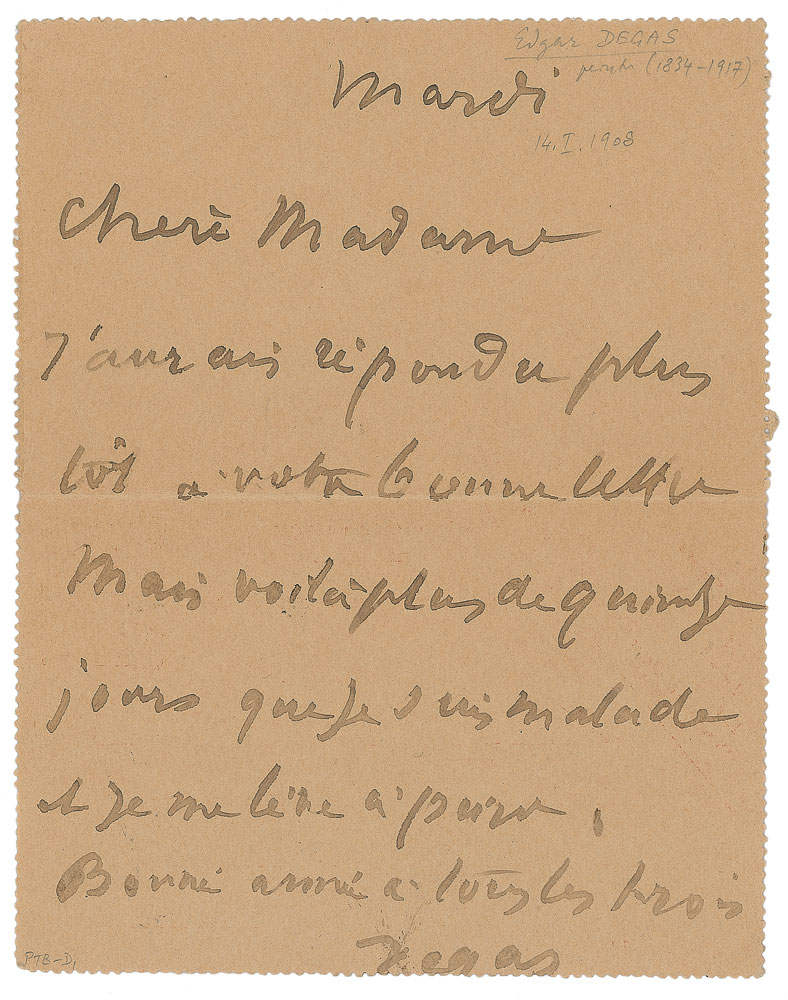 Edgar DEGAS
peintre (1834-1917)
Mardi
14.I.1908
Chere Madame
J'aurais répondu plus
tôt à votre bonne lettre
Mais voilà plus de quinze
jours que je suis malade
et je me lève à peine.
Bonne année à tous les trois
Degas
PTB-D,